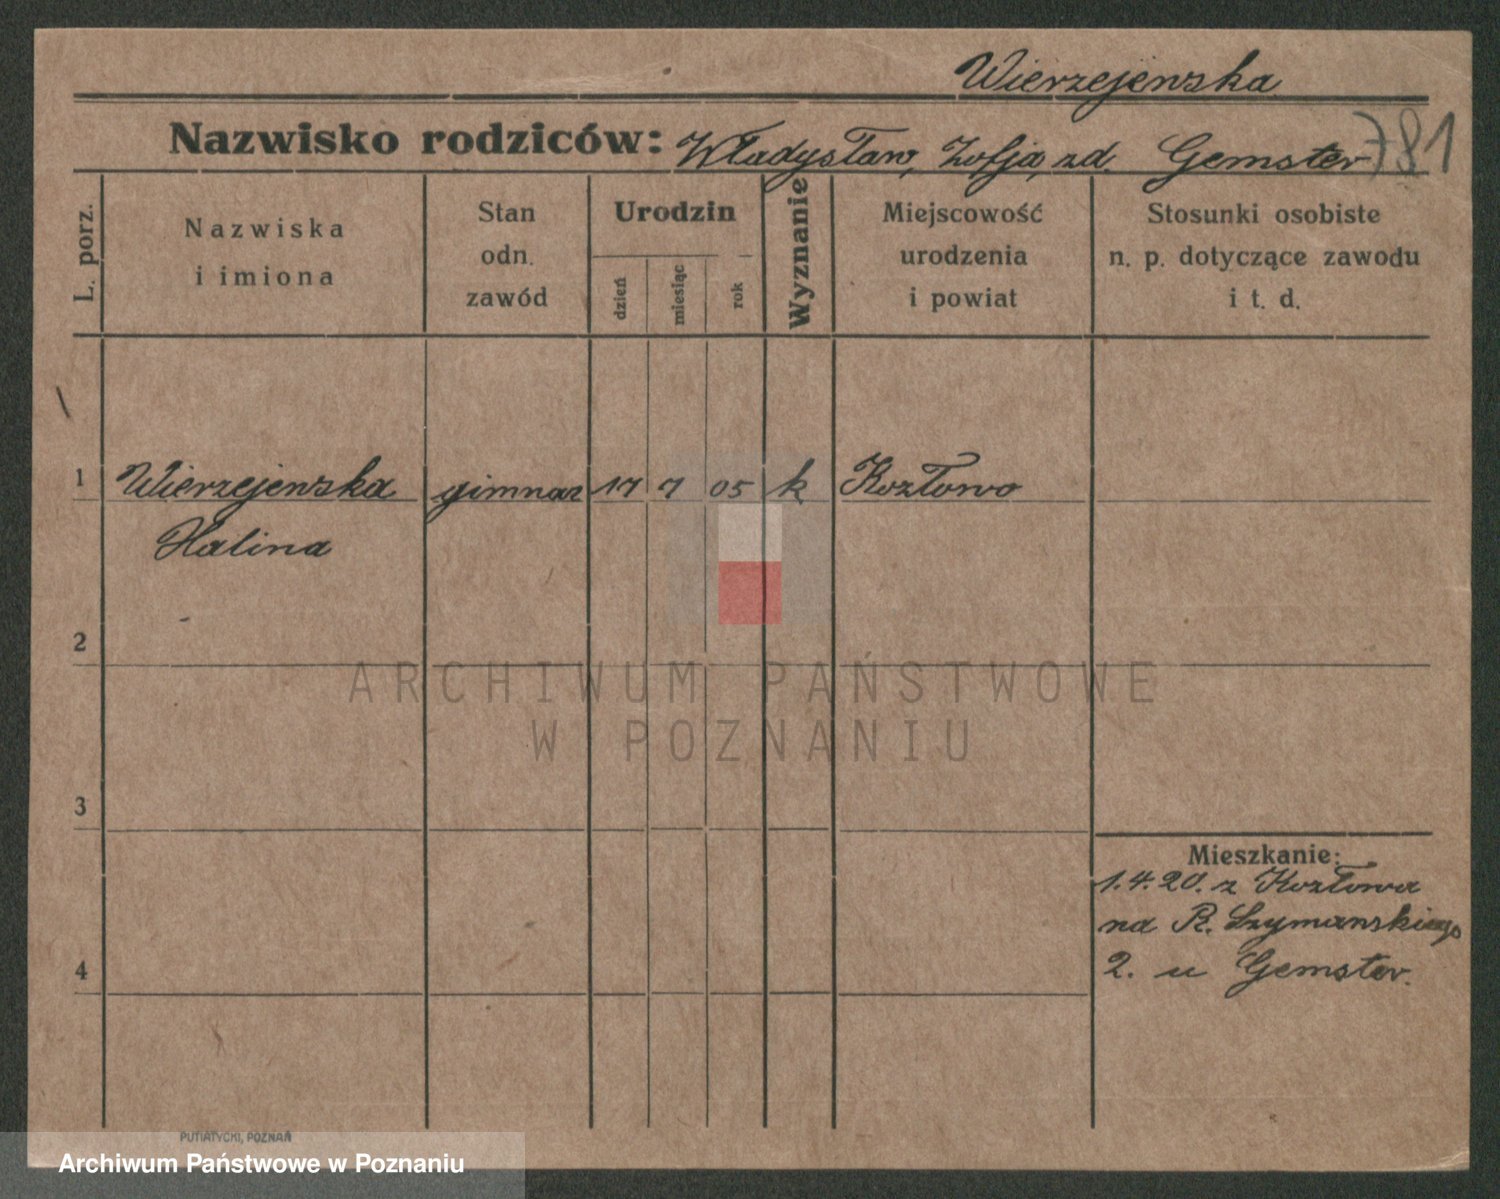 Wierzejewska
Nazwisko rodziców: Władysław, Zofja, zd. Gemster 781
L. porz.
Nazwiska
i imiona
Stan
odn.
zawód
Urodzin
dzień
miesiąc
rok
Wyznanie
Miejscowość
urodzenia
i powiat
Stosunki osobiste
n. p. dotyczące zawodu
i t. d.
1 Wierzejewska gimnaz 17 7 05 k Kozłowo
Halina
2
ARCHIWUM PAŃSTWOWE
W POZNANIU
3
Mieszkanie:
1.4.20. z Kozłowa
na R. Szymanskiego
4
2. u Gemster.
PUTIATYCKI, POZNAŃ
Archiwum Państwowe w Poznaniu